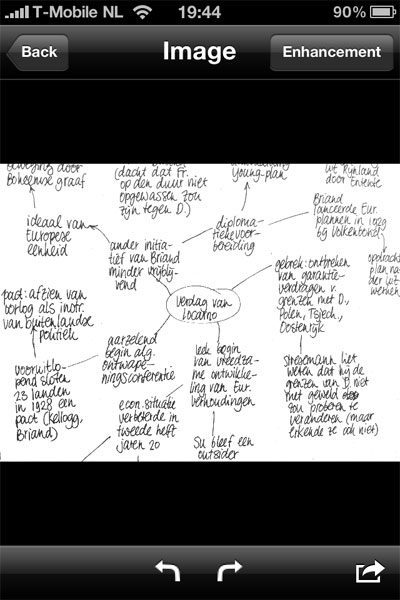 T-Mobile NL
19:44
90%
Back
Image
Enhancement
door
Boheemse graaf
(dacht dat Fr.
op den duur niet
opgewassen zou
zijn tegen D.)
Young-plan
uit Rijnland
door Entente
ideaal van
Europese
eenheid
ander initia-
tief van Briand
minder vrijblij-
vend
diploma-
tieke voor-
bereiding
Briand
lanceerde Eur.
plannen in 1929
bij Volkenbond
opdracht
plan na
der uit
werken
pact: afzien van
oorlog als instr.
van buitenlandse
politiek
Verdrag van
Locarno
gebrek: ontbreken
van garantie-
verdragen v.
grenzen met D.,
Polen, Tsjech.,
Oostenrijk
aarzelend
begin alg.
ontwape-
ningsconferentie
vooruitlo-
pend sloten
23 landen
in 1928 een
pact (Kellogg,
Briand)
leek begin
van vreedza-
me ontwikke-
ling van Eur.
verhoudingen
Stresemann liet
weten dat hij de
grenzen van D. niet
met geweld
zou proberen te
veranderen (maar
erkende ze ook niet)
econ. situatie
verbeterde in
tweede helft
jaren 20
SU bleef een
outsider